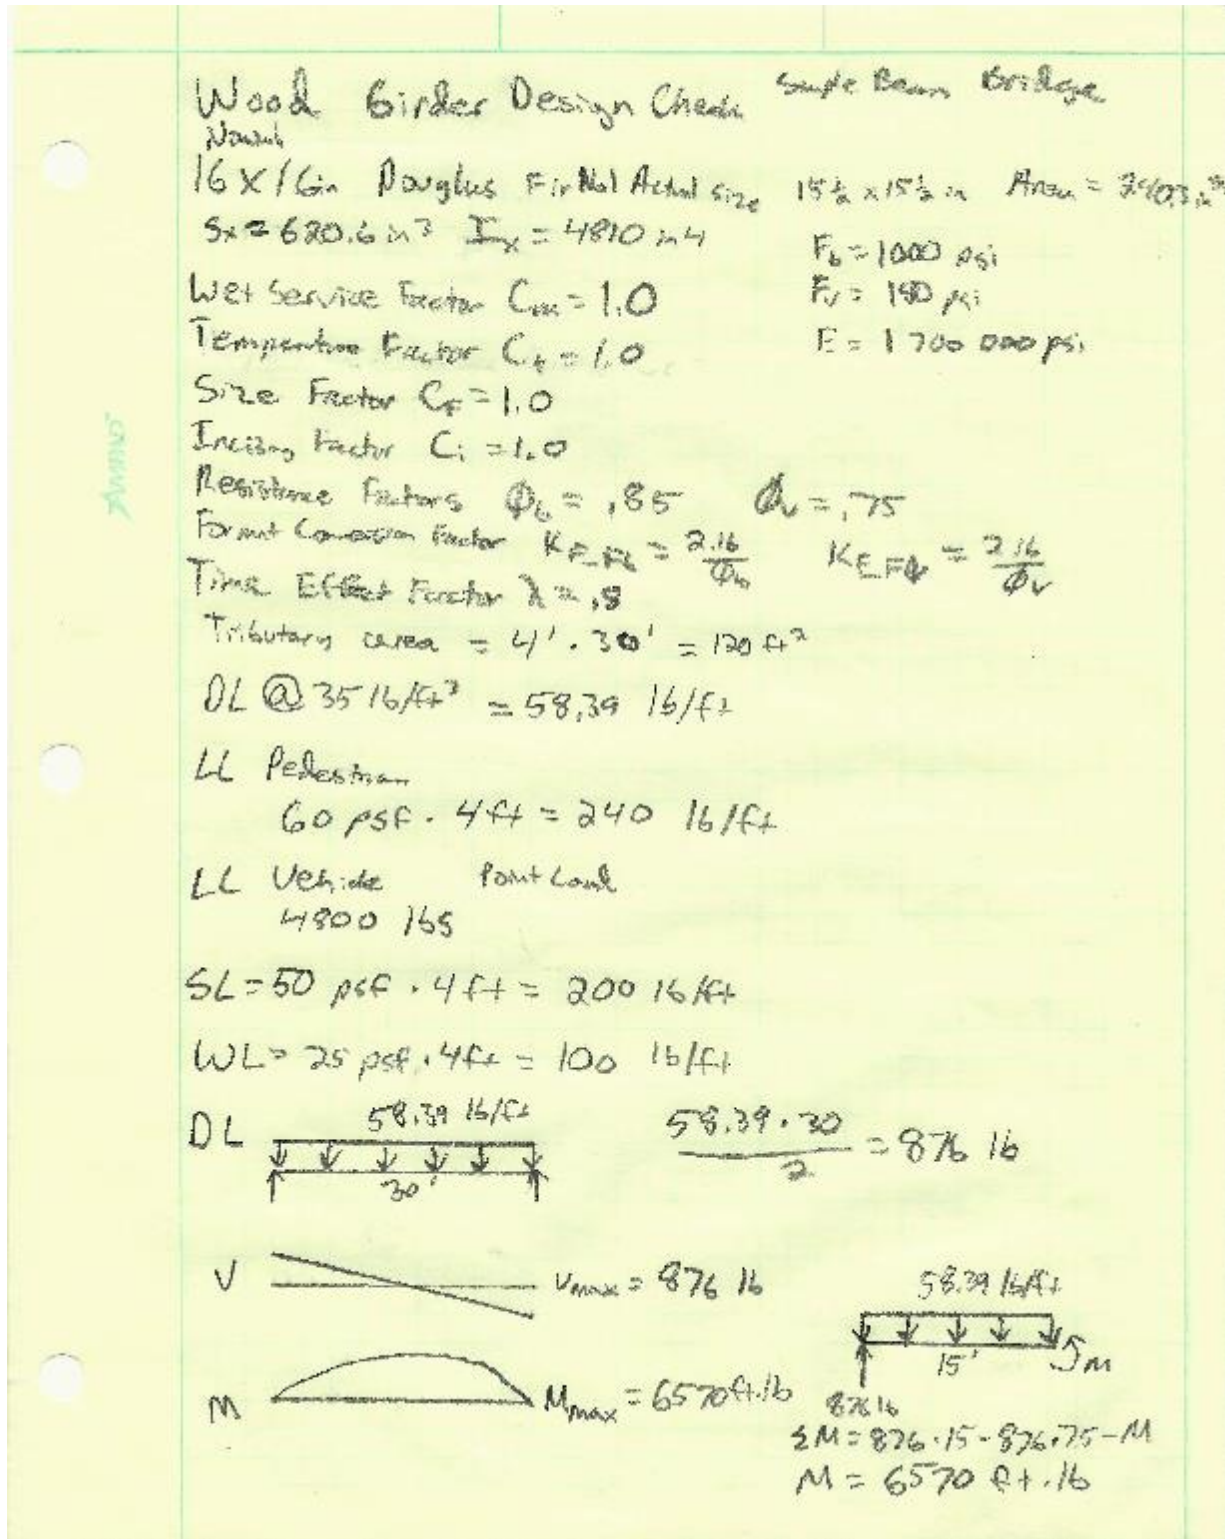 Wood Girder Design Check Simple Beam Bridge
Nominal
16 x 16in Douglas Fir No1 Actual size 15½ x 15½ in Area = 240.3 in²
Sx = 620.6 in³ Ix = 4810 in4
Fb = 1000 psi
Wet Service Factor Cm = 1.0
Fv = 180 psi
Temperature Factor Ct = 1.0
E = 1 700 000 psi
Size Factor CF = 1.0
Incising Factor Ci = 1.0
Resistance Factors Φb = .85 Φv = .75
Format Conversion Factor KF Fb = 2.16/Φb KF Fv = 2.16/Φv
Time Effect Factor λ = .8
Tributary area = 4' · 30' = 120 ft²
DL @ 35 lb/ft³ = 58.39 lb/ft
LL Pedestrian
60 psf · 4ft = 240 lb/ft
LL Vehicle Point Load
4800 lbs
SL = 50 psf · 4ft = 200 lb/ft
WL = 25 psf · 4ft = 100 lb/ft
DL 58.39 lb/ft 58.39 · 30 / 2 = 876 lb
30'
V Vmax = 876 lb
58.39 lb/ft
15' M
M Mmax = 6570 ft·lb
876 lb
ΣM = 876 · 15 - 876 · 7.5 - M
M = 6570 ft·lb
AMPAD